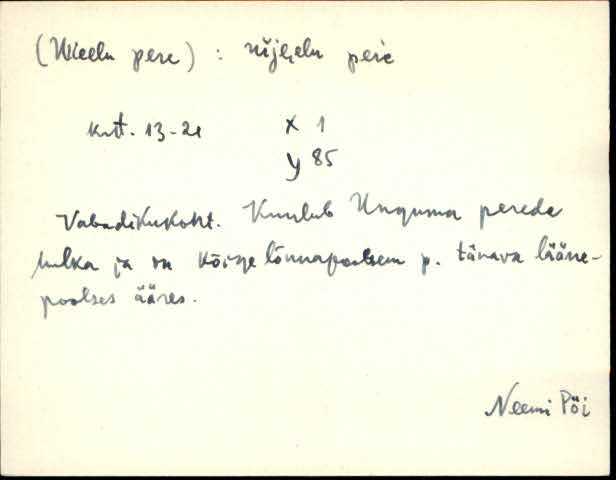 (Uieelu pere) : uije̬elu peŕe
krtt. 13-21 x 1
y 85
Vabadikukoht. Kuulub Unguma perede
hulka ja on kõige lõunapoolsem p. tänava lääne-
poolses ääres.
Neemi Pöi